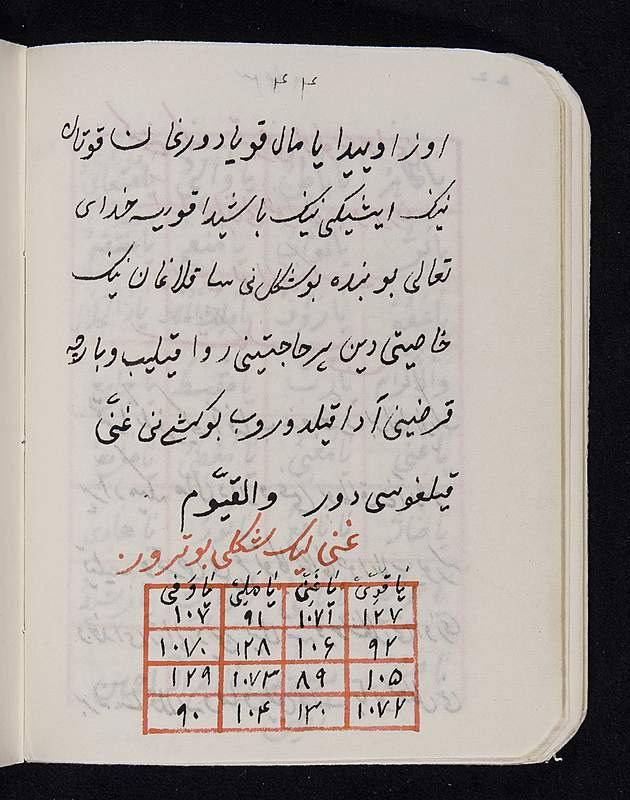 ۴۴
اوز اوییدا یا مال قویادورغان قوتان
نیک ایشیکی نیک باشیدا قوریسه خدای
تعالی بو بنده بو شکل نی ساقلاغان نیک
خاصیتی دین هر حاجتینی روا قیلیب و بارچه
قرضینی آدا قیلدوروب بو کشی نی غنّی
قیلغوسی دور والقیّوم
غنی لیک شکلی بو ترور
یا قوی یا غنی یا ملی یا وفی
۱۲۷ ۱۰۷۱ ۹۱ ۱۰۷
۹۲ ۱۰۶ ۱۲۸ ۱۰۷۰
۱۰۵ ۸۹ ۱۰۷۳ ۱۲۹
۱۰۷۲ ۱۳۰ ۱۰۴ ۹۰